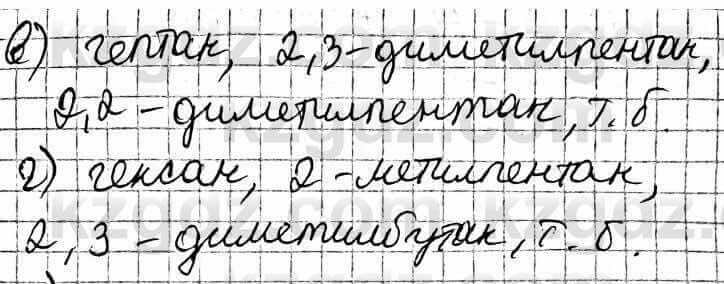 в) гептан, 2,3-диметилпентан,
2,2-диметилпентан, т.б.
г) гексан, 2-метилпентан,
2,3-диметилбутан, т.б.